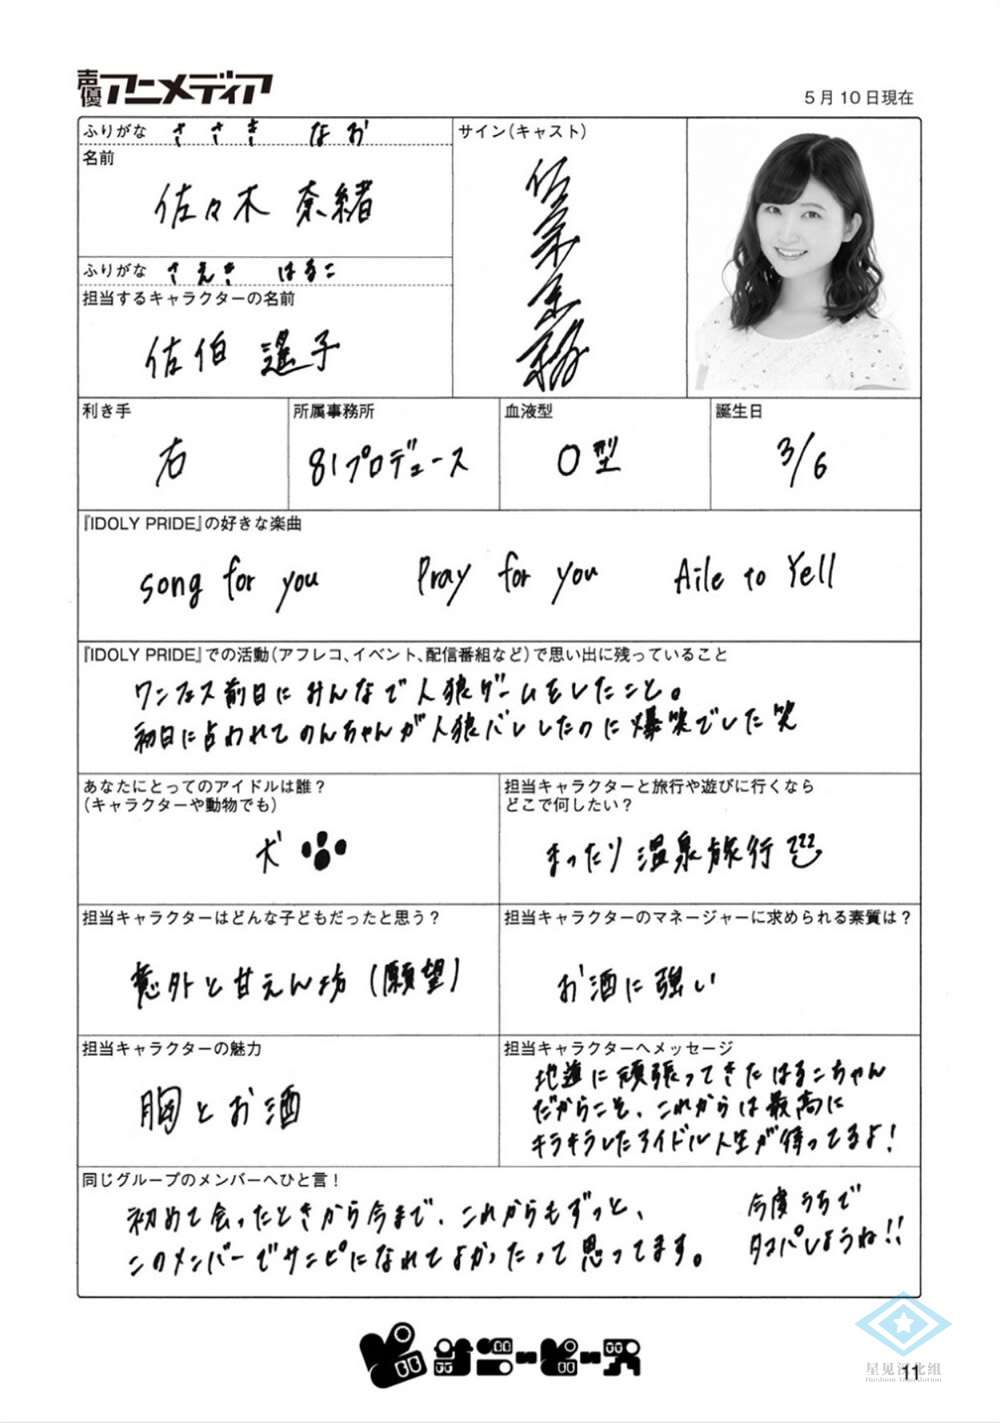 声優アニメディア
5月10日現在
ふりがな ささき なお
名前
佐々木 奈緒
ふりがな さえき はるこ
担当するキャラクターの名前
佐伯 遙子
サイン(キャスト)
利き手
右
所属事務所
81プロデュース
血液型
O型
誕生日
3/6
『IDOLY PRIDE』の好きな楽曲
song for you Pray for you Aile to Yell
『IDOLY PRIDE』での活動(アフレコ、イベント、配信番組など)で思い出に残っていること
ワンフェス前日にみんなで人狼ゲームをしたこと。
初日に占われてのんちゃんが人狼バレしたのに爆笑でした笑
あなたにとってのアイドルは誰?
(キャラクターや動物でも)
犬
担当キャラクターと旅行や遊びに行くなら
どこで何したい?
まったり温泉旅行
担当キャラクターはどんな子どもだったと思う?
意外と甘えん坊(願望)
担当キャラクターのマネージャーに求められる素質は?
お酒に強い
担当キャラクターの魅力
胸とお酒
担当キャラクターへメッセージ
地道に頑張ってきたはるこちゃん
だからこそ、これからは最高に
キラキラしたアイドル人生が待ってるよ!
同じグループのメンバーへひと言!
初めて会ったときから今まで、これからもずっと、
このメンバーでサニピになれてよかったって思ってます。
今度うちで
タコパしようね!!
サニーピース
星见河北组
Hoshimi Translation
11